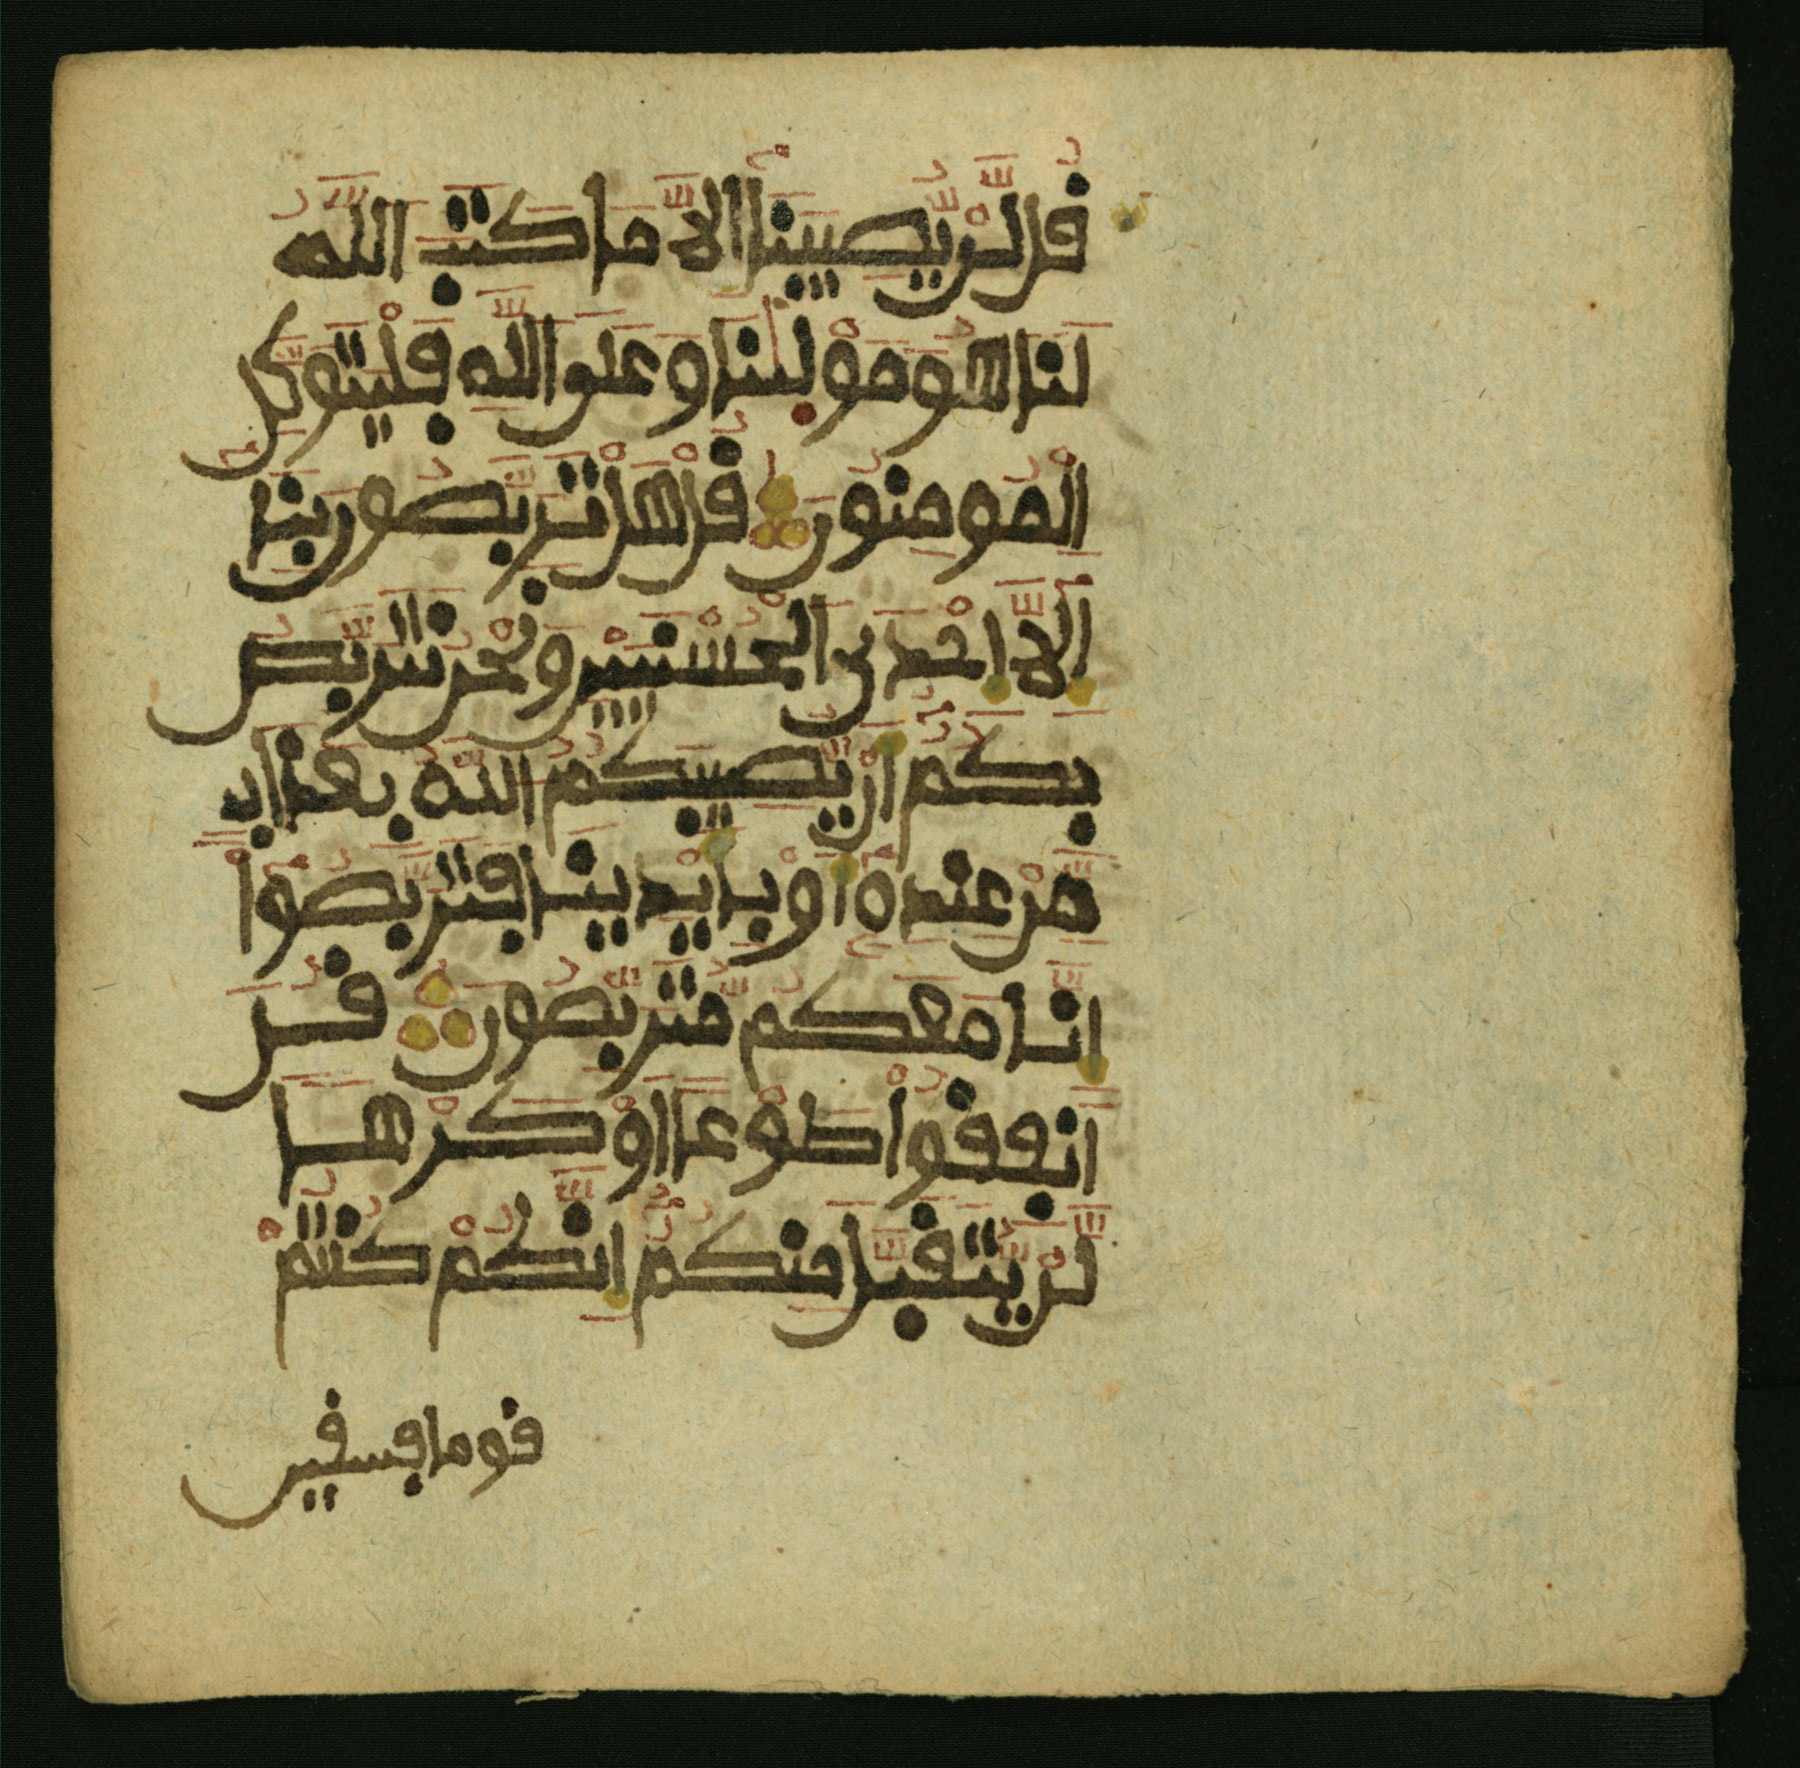 قل لن يصيبنا الا ما كتب الله
لنا هو مولينا و على الله فليتوكل
المومنون قل هل تربصون بنا
الا احدى الحسنيين و نحن نتربص
بكم ان يصيبكم الله بعذاب
من عنده او بايدينا فتربصوا
انا معكم متربصون قل
انفقوا طوعا او كرها
لن يتقبل منكم انكم كنتم
قوما فسقين